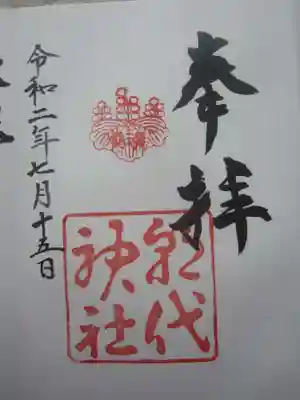 奉拝
朝代
神社
令和二年七月十五日